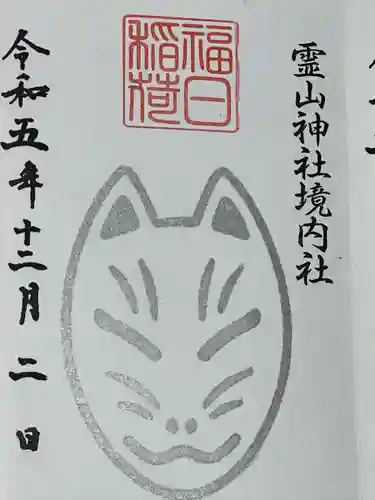 霊山神社境内社
福日稲荷
令和五年十二月二日